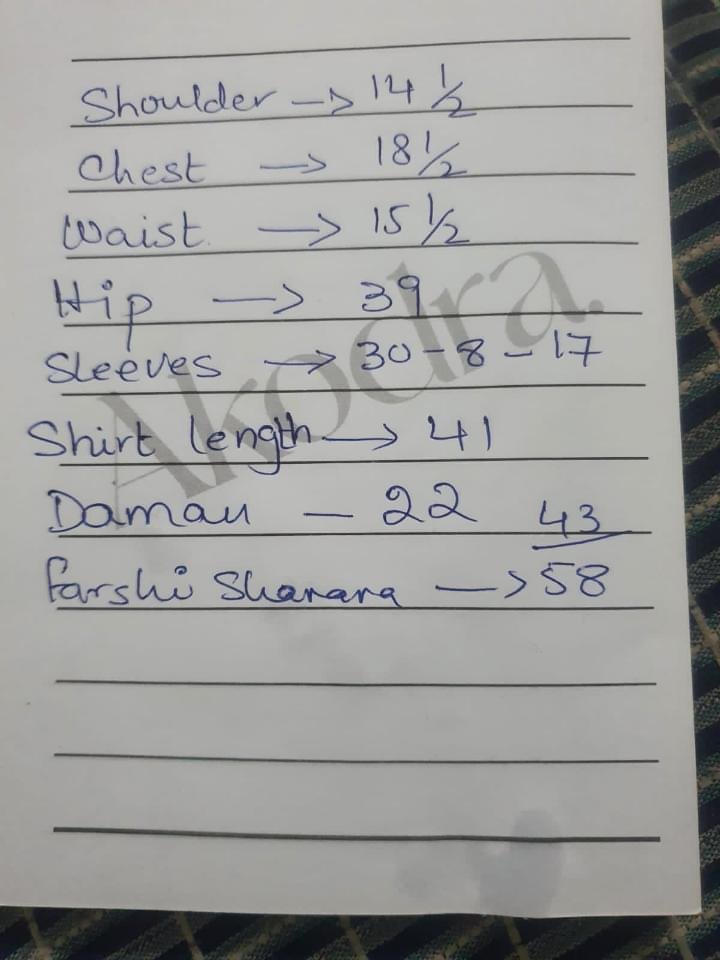 Shoulder -> 14 1/2
Chest -> 18 1/2
Waist -> 15 1/2
Hip -> 39
Sleeves -> 30-8-17
Shirt length -> 41
Daman - 22 43
Farshi Sharara -> 58
Akodra.